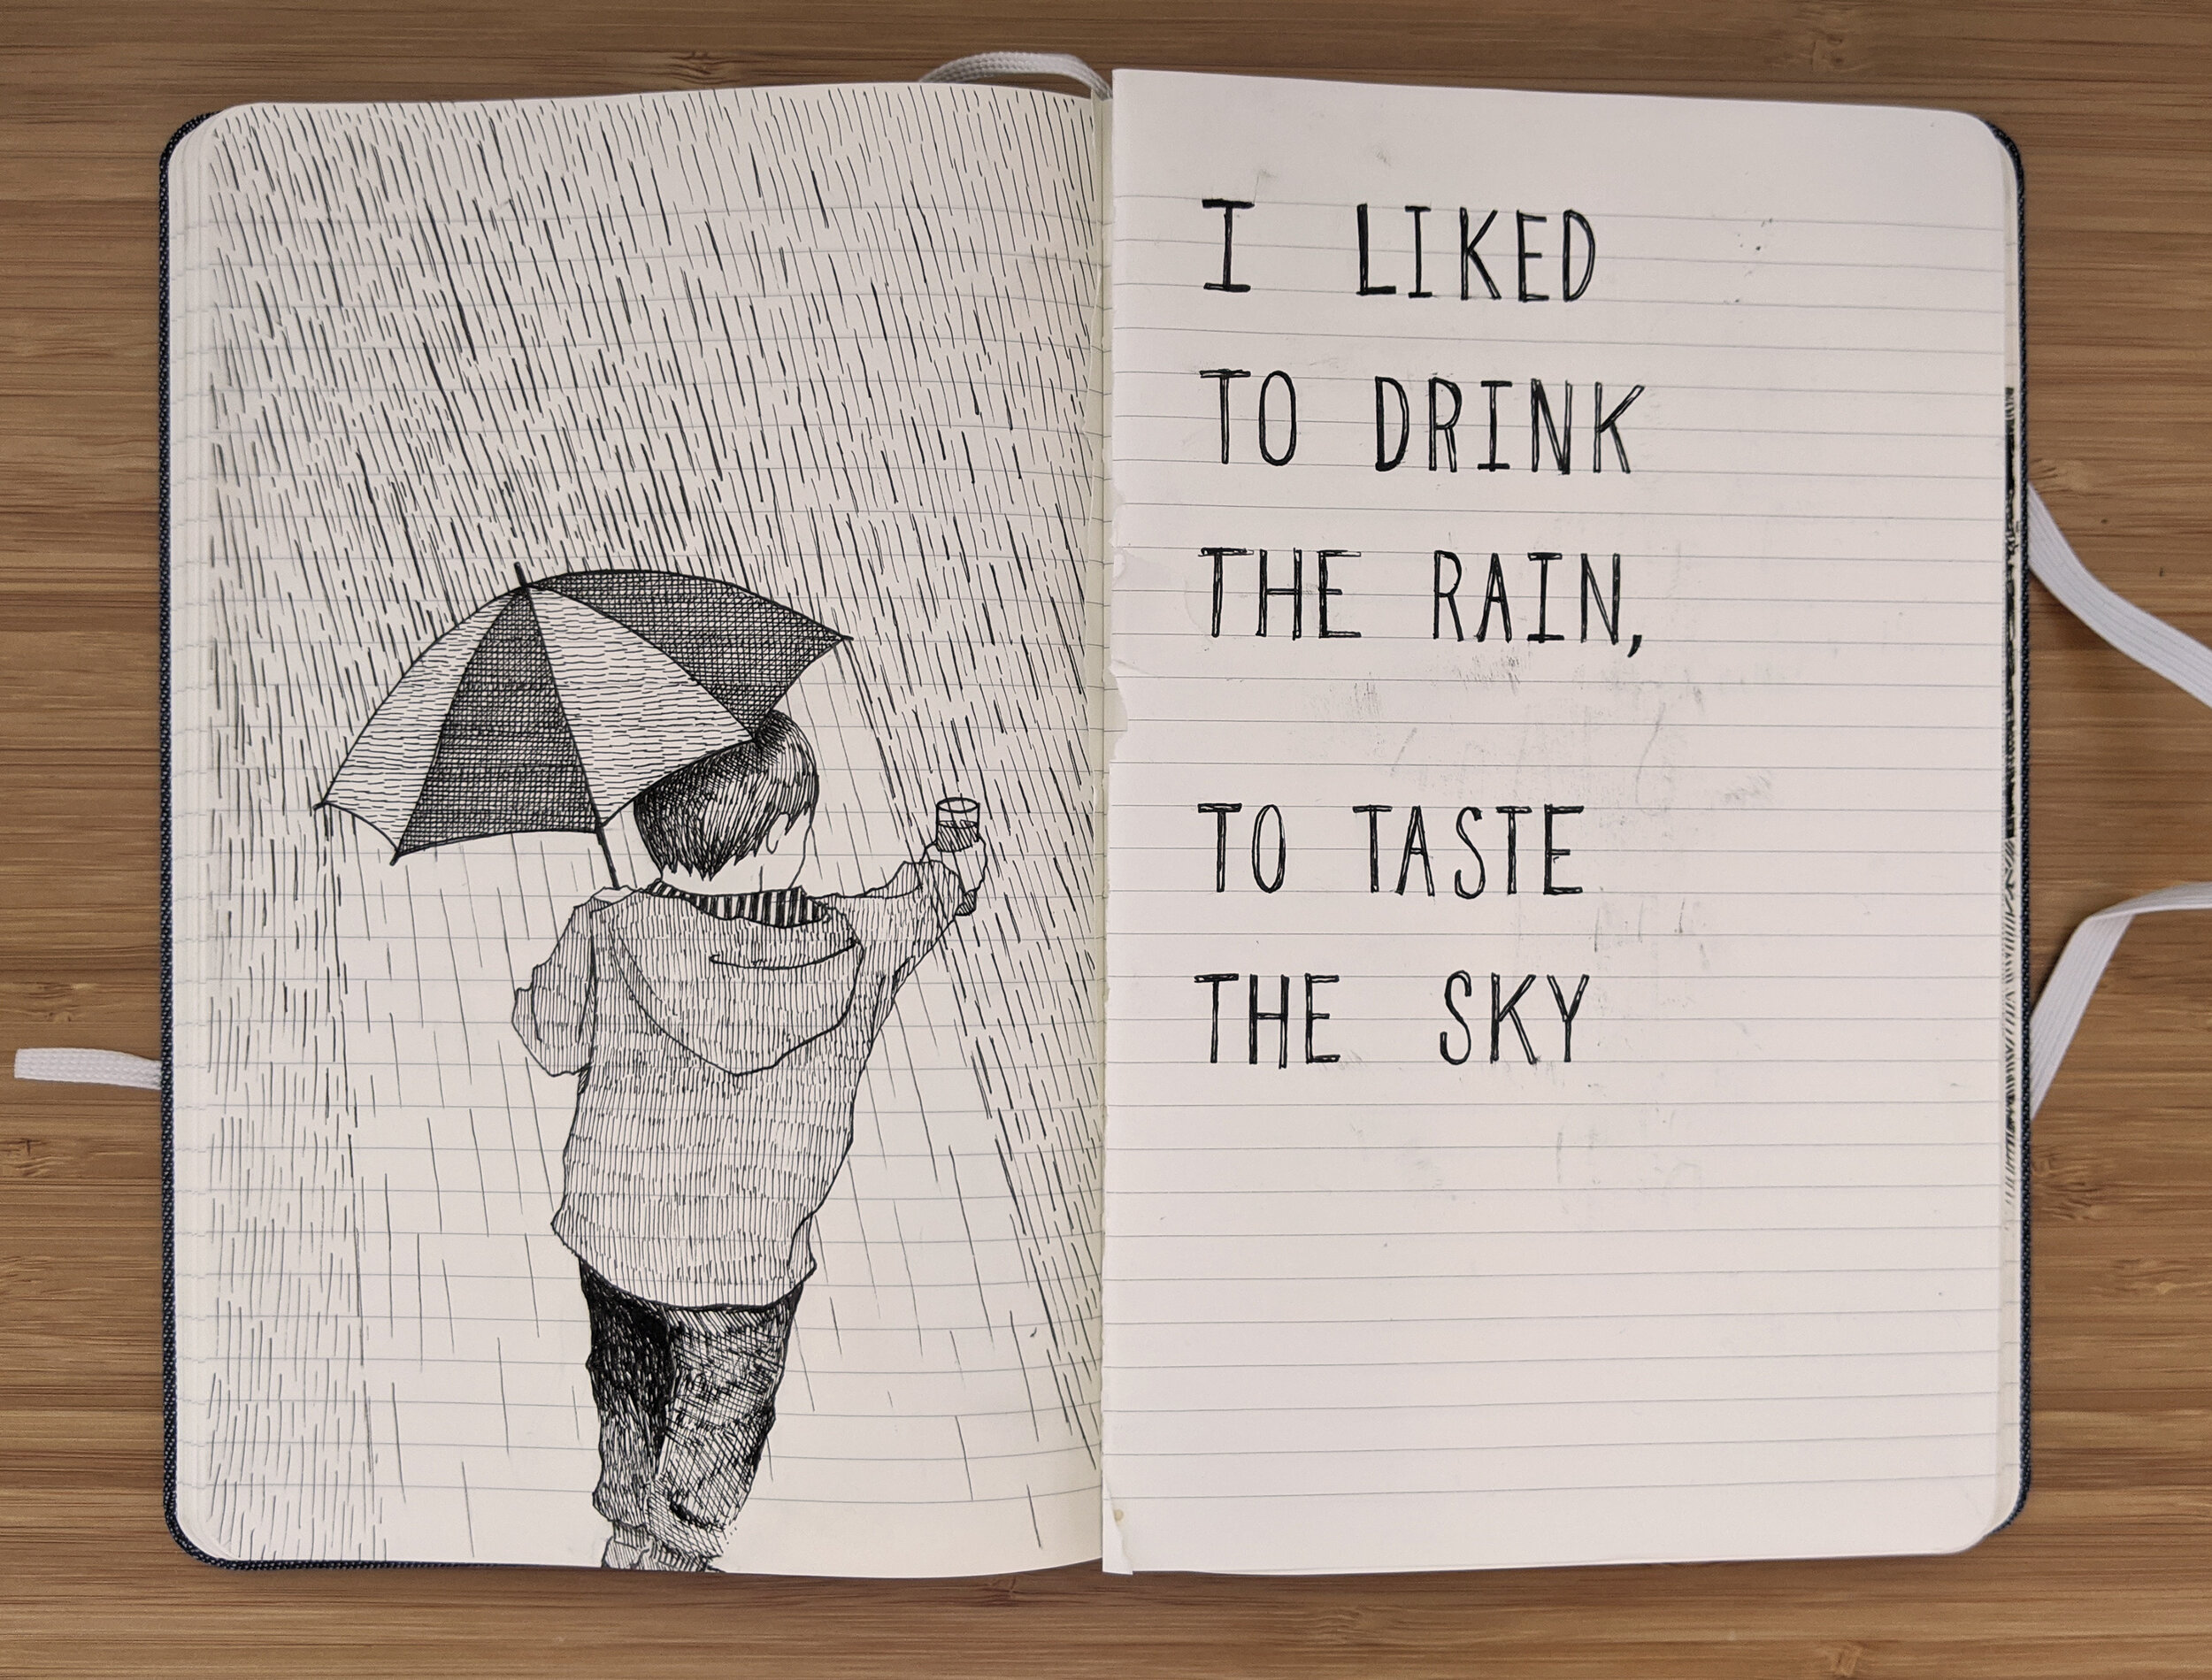 I LIKED
TO DRINK
THE RAIN,
TO TASTE
THE SKY